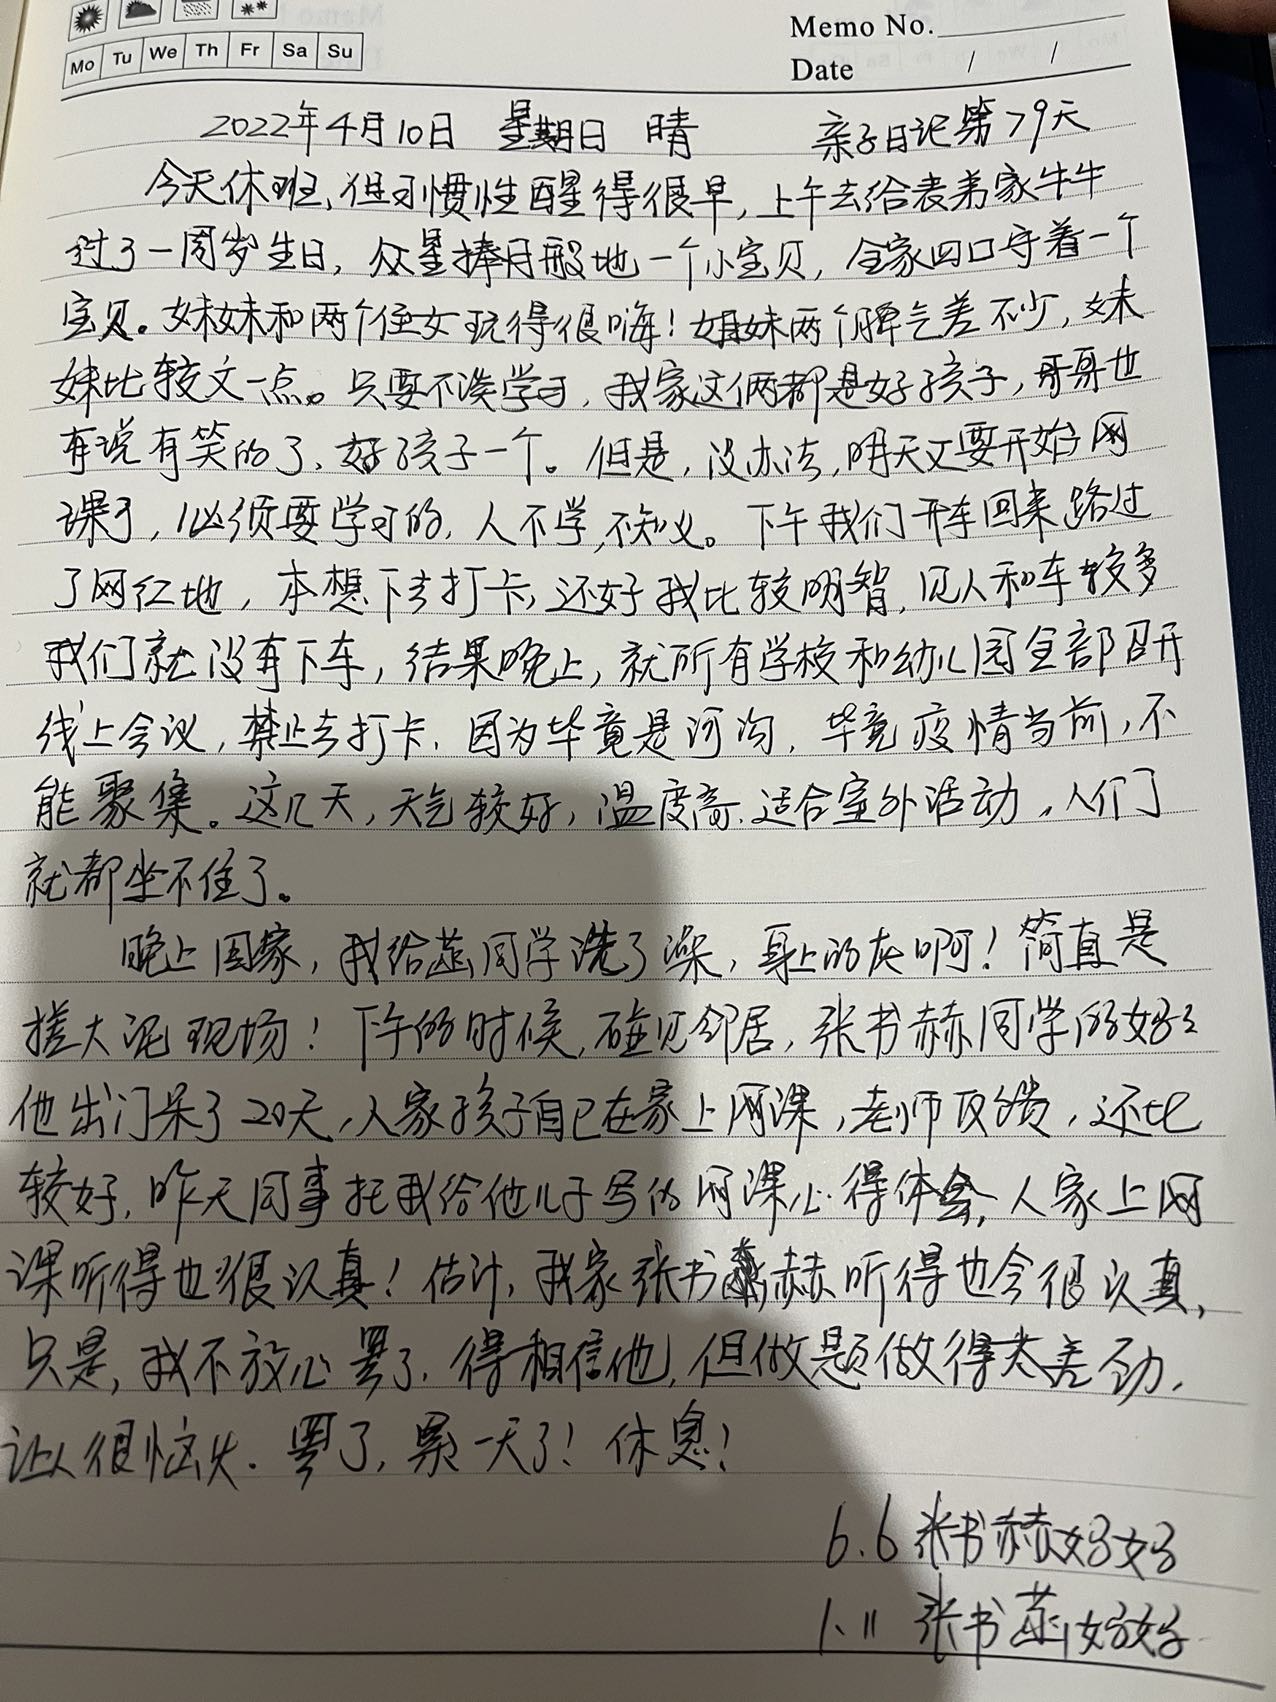 Memo No.
Mo Tu We Th Fr Sa Su
Date / /
2022年4月10日 星期日 晴 亲子日记第79天
今天休班,但习惯性醒得很早,上午去给表弟家牛牛
过了一周岁生日,众星捧月般地一个小宝贝,全家四口守着一个
宝贝。妹妹和两个侄女玩得很嗨!姐妹两个脾气差不少,妹
妹比较文一点。只要不谈学习,我家这俩都是好孩子,哥哥也
有说有笑的了,好孩子一个。但是,没办法,明天又要开始网
课了,必须要学习的,人不学,不知义。下午我们开车回来路过
了网红地,本想下去打卡,还好我比较明智,见人和车较多
我们就没有下车,结果晚上,就所有学校和幼儿园全部召开
线上会议,禁止去打卡,因为毕竟是河沟,毕竟疫情当前,不
能聚集。这几天,天气较好,温度高,适合室外活动,人们
就都坐不住了。
晚上回家,我给菡同学洗了澡,身上的灰啊!简直是
搓大泥现场!下午的时候,碰见邻居,张书赫同学的好友
他出门呆了20天,人家孩子自己在家上网课,老师反馈,还比
较好,昨天同事托我给他儿子写的网课心得体会,人家上网
课听得也很认真!估计,我家张书赫听得也会很认真,
只是,我不放心罢了,得相信他,但做题做得太差劲,
让人很恼火.罢了,累一天了!休息!
6.6 张书赫妈妈
1.11 张书菡妈妈